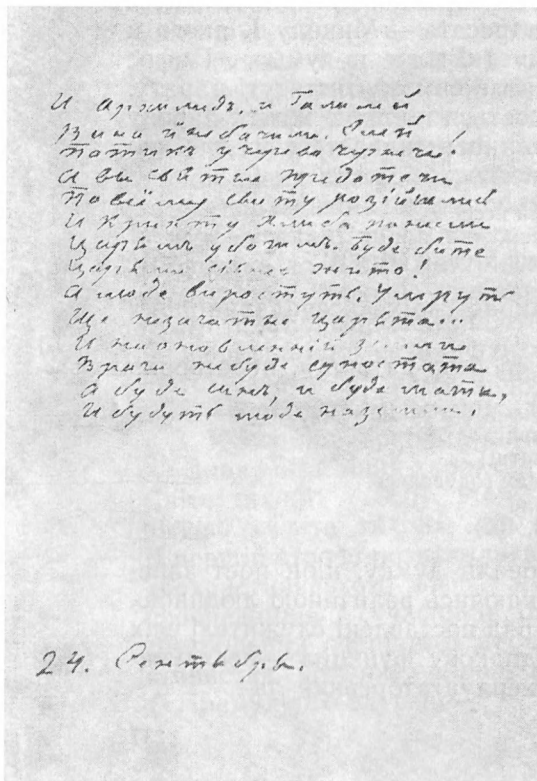 И архимидъ, и Галилей
Вина й небачили. Елей
Потикъ у черево чернече!
А вы святые предотечи
По всёму свиту розійшлись
И крихту хлиба понесли
Царямъ убогимъ. Буде бите
Царями сіянее жито!
А люде виростуть. Умруть
Ще незачатые царята...
И на оновленній земли
Врага небуде супостата
А буде сынъ, и буде мать,
И будуть люде наземли.
24. Сентября.